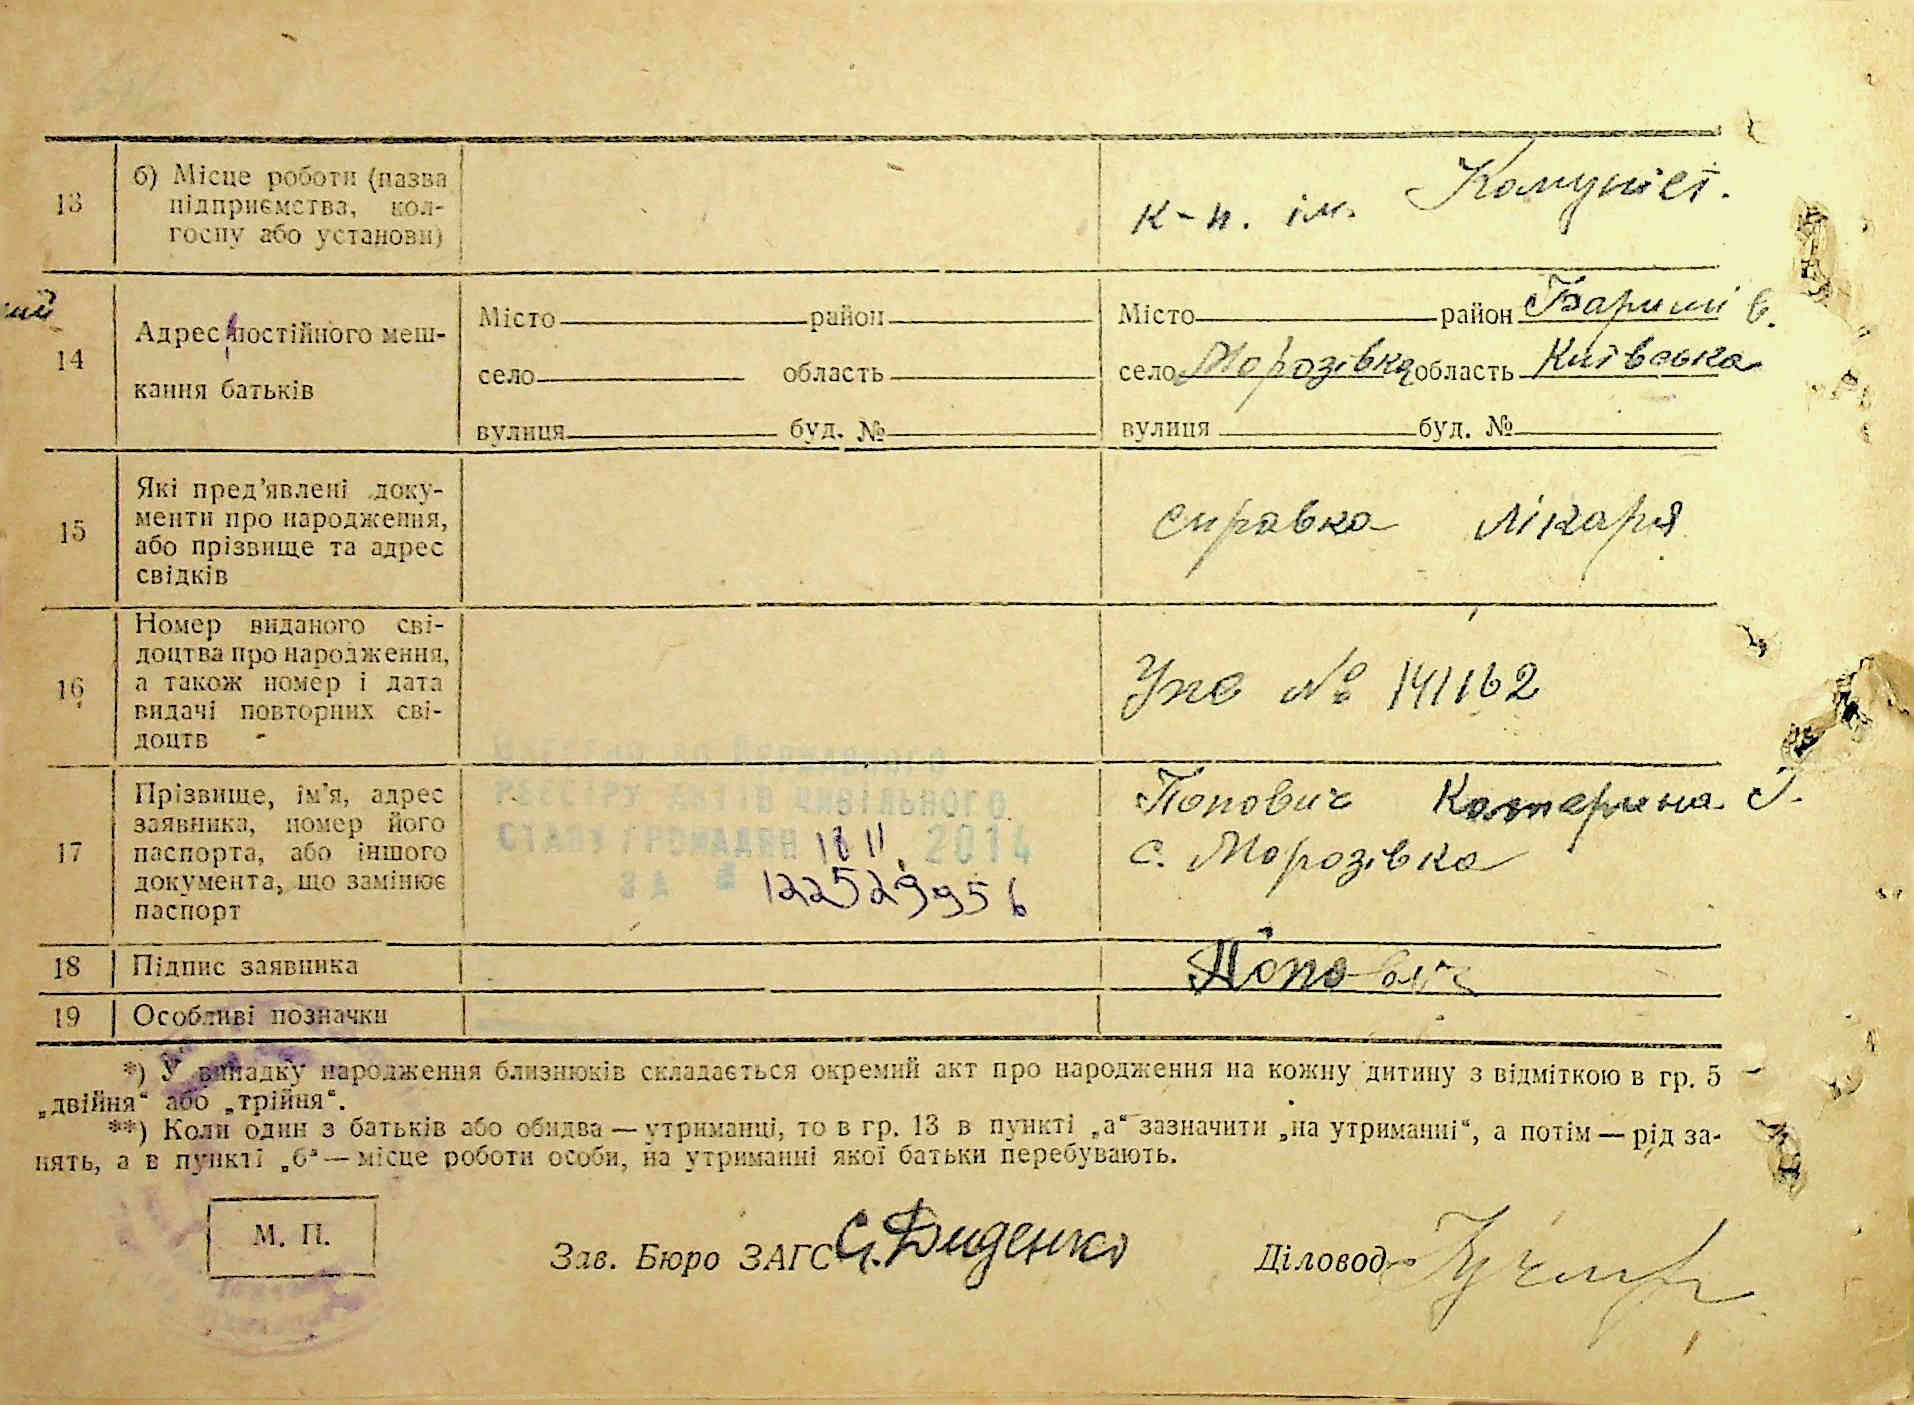 13
б) Місце роботи (назва
підприємства, кол-
госпу або установи)
к-п. ім. Комуніст.
14
Адрес постійного меш-
кання батьків
Місто район
село область
вулиця буд. №
Місто район Баришів.
село Морозівка область Київська
вулиця буд. №
15
Які пред’явлені доку-
менти про народження,
або прізвище та адрес
свідків
справка лікаря
16
Номер виданого сві-
доцтва про народження,
а також номер і дата
видачі повторних сві-
доцтв
№ 141162
17
Прізвище, ім’я, адрес
заявника, номер його
паспорта, або іншого
документа, що замінює
паспорт
Внесено до Державного
РЕЄСТРУ АКТІВ ЦИВІЛЬНОГО
СТАНУ ГРОМАДЯН 2014
ЗА №
Попович Катерина. І.
с. Морозівка
18
Підпис заявника
Попович
19
Особливі позначки
*) У випадку народження близнюків складається окремий акт про народження на кожну дитину з відміткою в гр. 5
„двійня“ або „трійня“.
**) Коли один з батьків або обидва — утриманці, то в гр. 13 в пункті „а“ зазначити „на утриманні“, а потім — рід за-
нять, а в пункті „б“ — місце роботи особи, на утриманні якої батьки перебувають.
М. П.
Зав. Бюро ЗАГС С. Диденко
Діловод